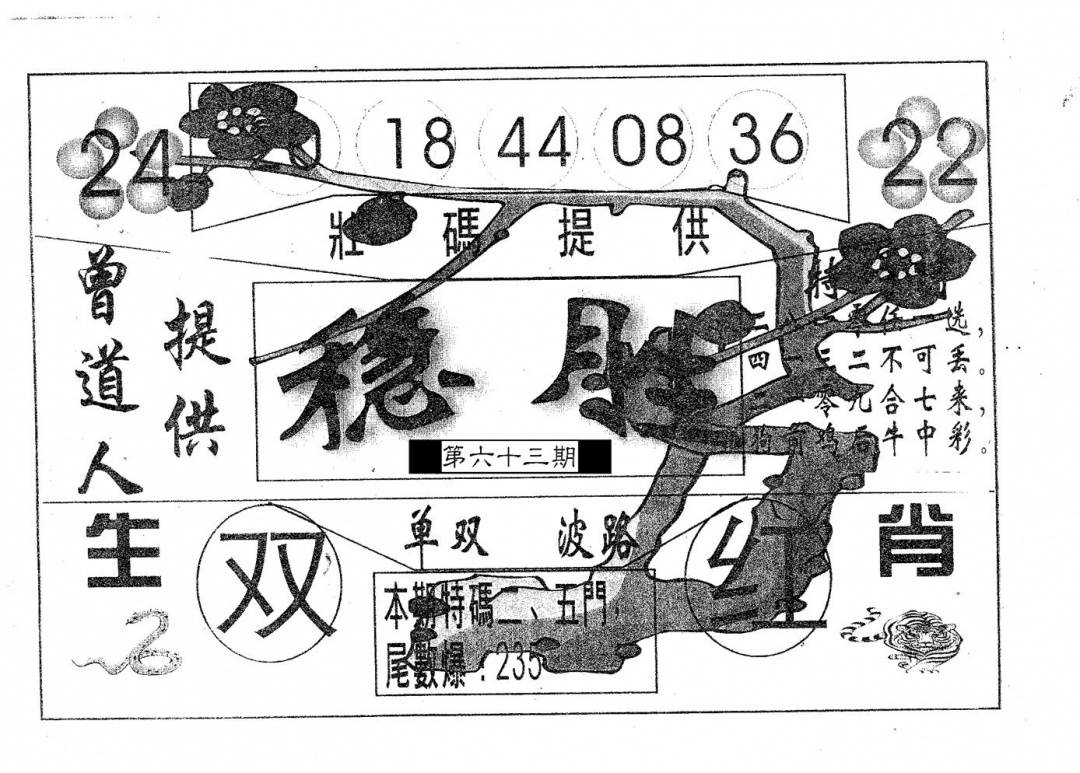 24
18 44 08 36
22
壯碼提供
曾道人
提供
稳胜
第六十三期
特
选，
四一三二不可丢。
零九合七来，
狗前鸡后牛中彩。
生
双
单双 波路
红
肖
本期特碼二、五門，
尾數爆：235